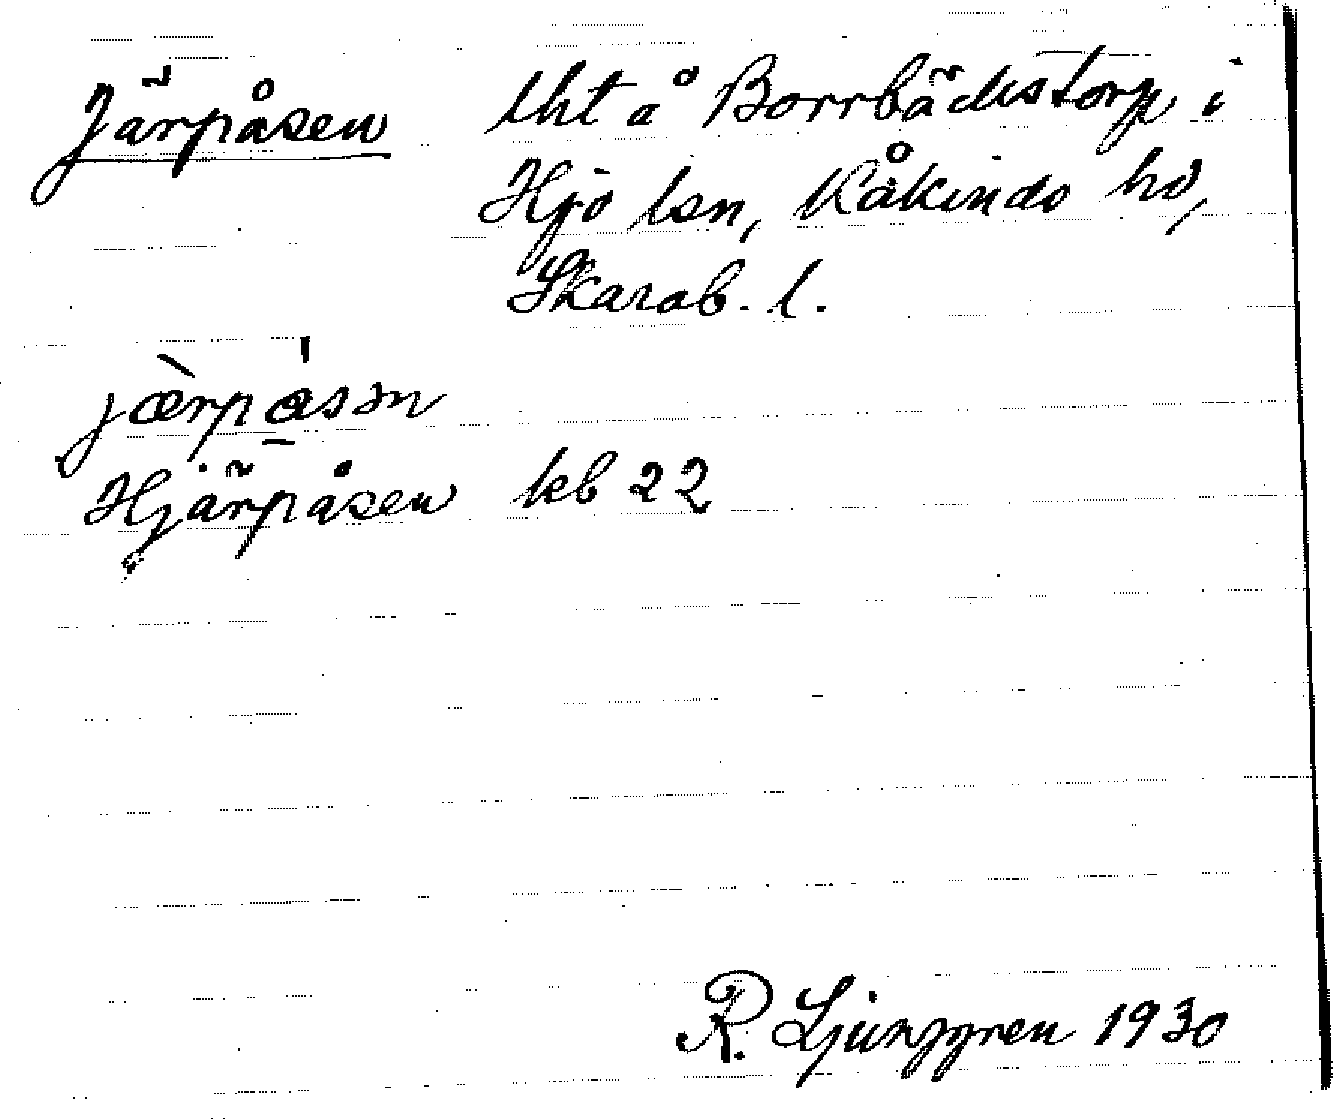 Järpåsen lht å Borrbäckstorp i
Hjo lsn, Kåkinds hd,
Skarab. l.
jæ̀rpåsən
Hjärpåsen kb 22
R. Ljunggren 1930